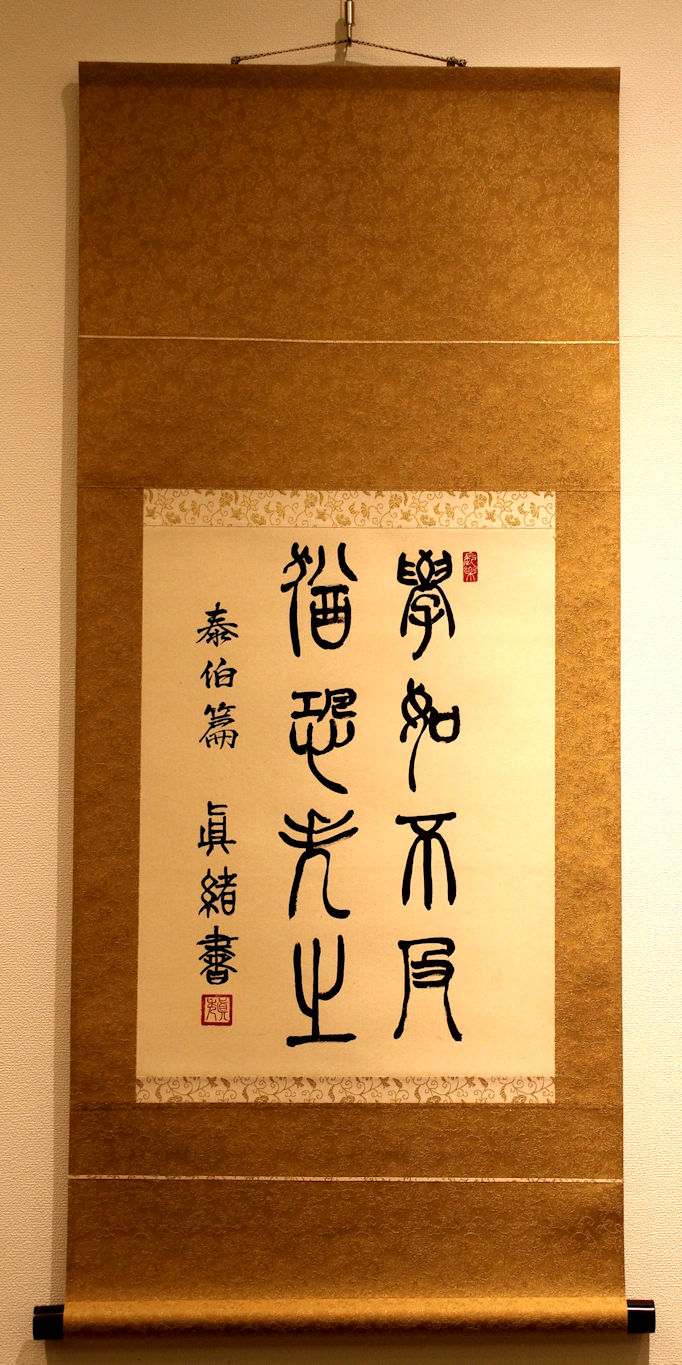 學如不及
猶恐失之
泰伯篇 眞緒書